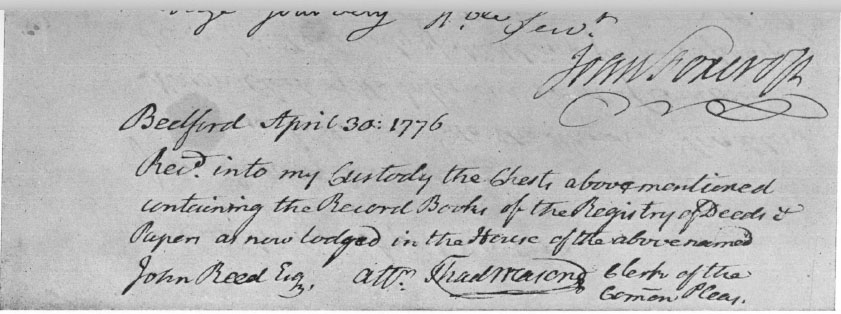 your very H.ble Serv.t
John Foxcroft
Bedford April 30: 1776
Rec.d into my Custody the Chests above mentioned
containing the Record Books of the Registry of Deeds &
Papers as now lodged in the House of the above named
John Reed Esq. att.r Thad Mason Clerk of the
Comōn Pleas.